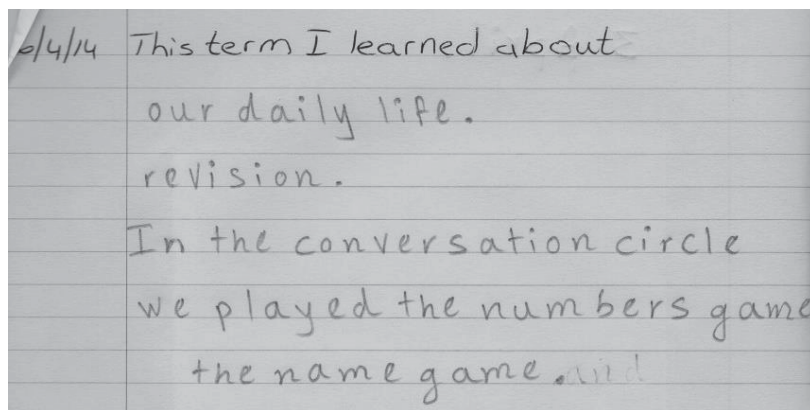 6/4/14 This term I learned about
our daily life.
revision.
In the conversation circle
we played the numbers game
the name game. and